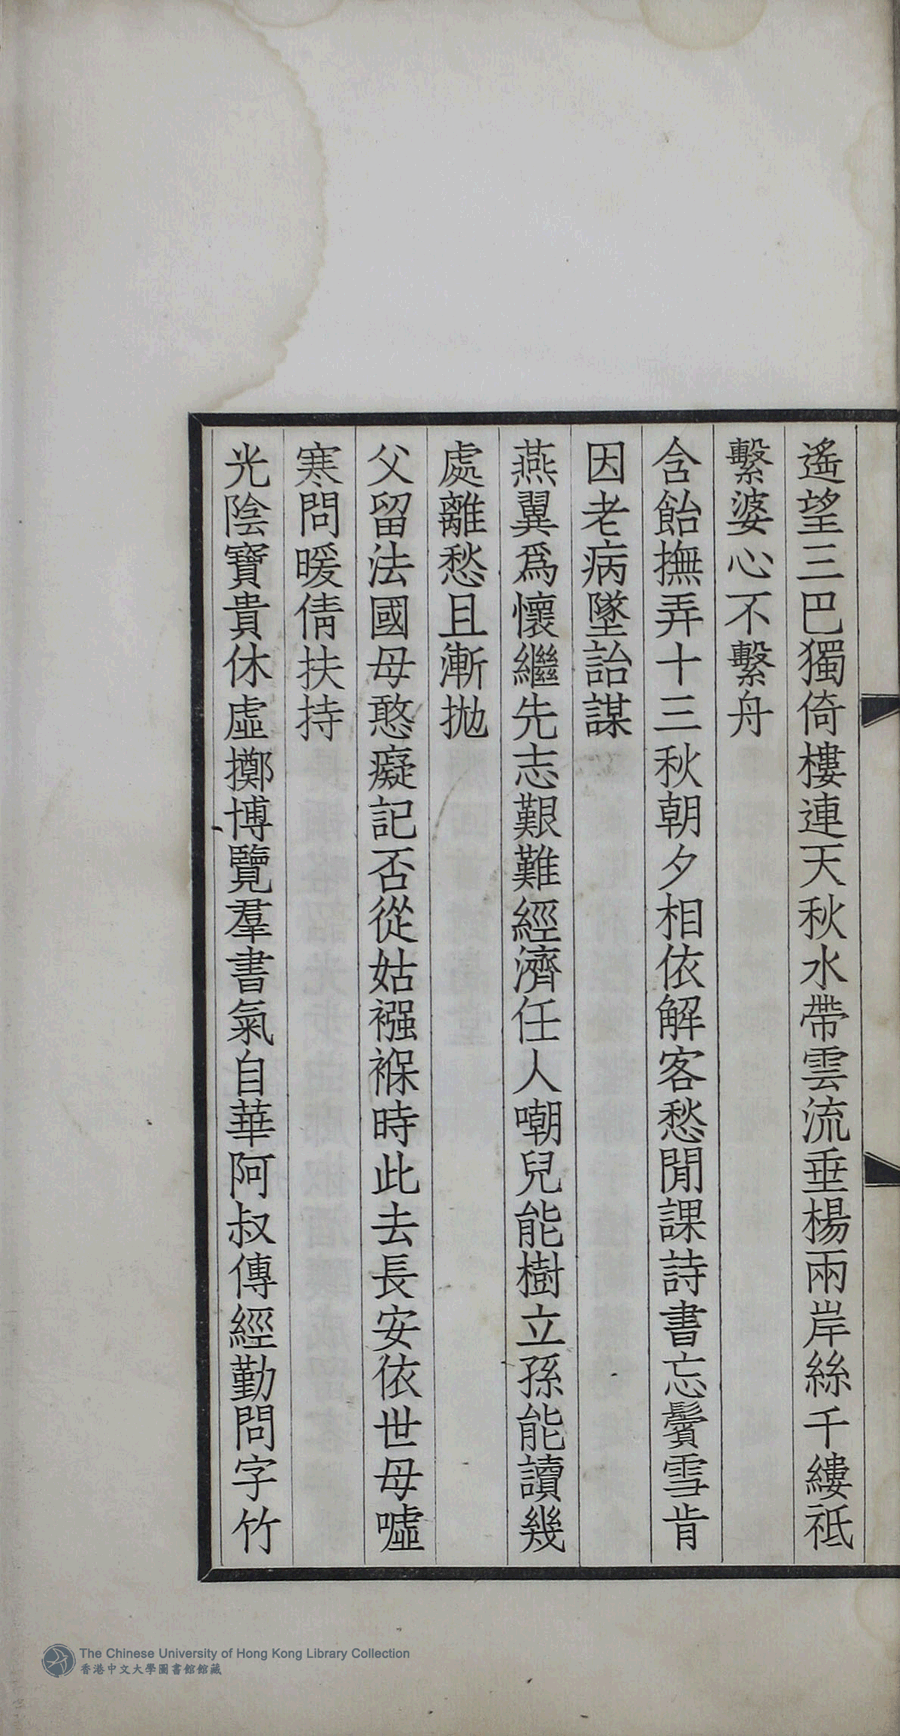 遙望三巴獨倚樓連天秋水帶雲流垂楊兩岸絲千縷祗
繫婆心不繫舟
含飴撫弄十三秋朝夕相依解客愁閒課詩書忘鬢雪肯
因老病墜詒謀
燕翼爲懷繼先志艱難經濟任人嘲兒能樹立孫能讀幾
處離愁且漸拋
父留法國母憨癡記否從姑襁褓時此去長安依世母噓
寒問暖倩扶持
光陰寶貴休虛擲博覽羣書氣自華阿叔傳經勤問字竹
The Chinese University of Hong Kong Library Collection
香港中文大學圖書館館藏